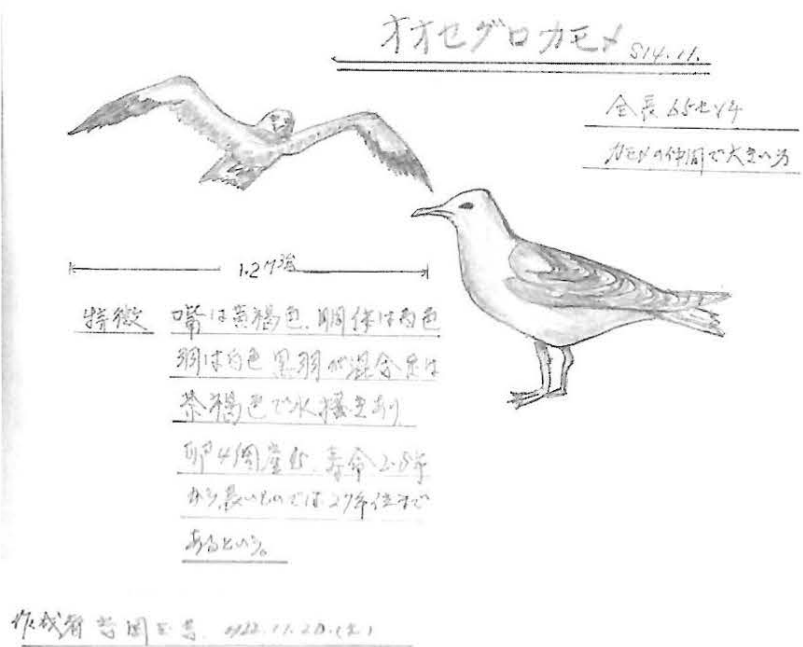 オオセグロカモメ S14.11.
全長65センチ
カモメの仲間で大きい方
1.2m強
特徴 嘴は黄褐色、胴体は白色
羽は白色黒羽が混合足は
茶褐色で水掻きあり
卵4個産む、寿命2.5年
から長いものでは27年位まで
あるという。
作成者 11.20.(土)